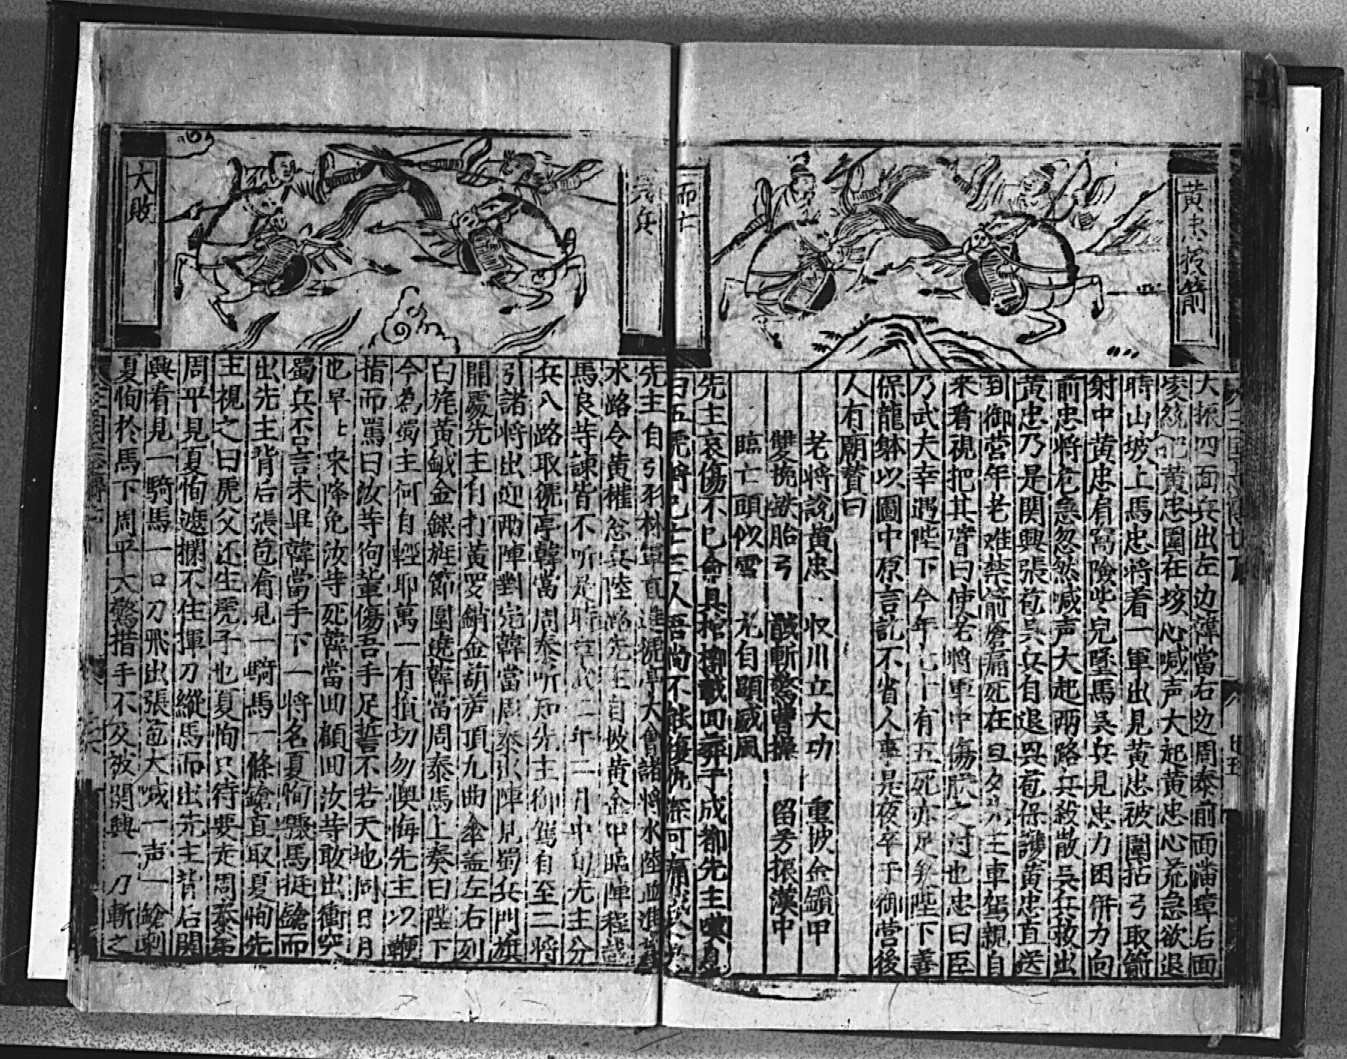 黃忠被箭
而亡
大振四面兵出左边韓當右边周泰前面潘璋后面
凌統把黃忠圍在垓心喊声大起黃忠心荒急欲退
時山坡上馬忠將着一軍出見黃忠被圍拈弓取箭
射中黃忠肩窩險些兒墜馬吳兵見忠力困併力向
前忠將危急忽然喊声大起兩路兵殺散吳兵救出
黃忠乃是関興張苞吳兵自退興苞保護黃忠直送
到御营年老难禁箭瘡痛死在旦夕先主車駕親自
來看視把其背曰使老將軍中傷朕之过也忠曰臣
乃武夫幸遇陛下今年七十有五死亦足矣陛下善
保龍躰以圖中原言訖不省人事是夜卒于御营後
人有廟賛曰
老將說黃忠 收川立大功 重披金鎖甲
雙挽鉄胎弓 胆氣驚 留芳振漢中
臨亡頭似雪 尤自顯威風
先主哀傷不已命具棺槨載回葬于成都先主嘆息
曰五虎將已亡三人吾尚不能復仇深可痛哉
元兵
大敗
先主自引羽林軍直進猇亭大會諸將水陸並進
水路令黃權忩兵陸路先主自披黃金甲臨陣程畿
馬良等諫皆不听是時章武二年二月中旬先主分
兵八路取猇亭韓當周泰听知先主御駕自至二將
引諸將出迎兩陣對完韓當周泰出陣見蜀兵門旗
開處先主自打黃罗銷金葫芦頂九曲傘盖左右列
白旄黃鉞金銀旌節圍遶韓當周泰馬上奏曰陛下
今為蜀主何自輕耶萬一有損切勿懊悔先主以鞭
指而罵曰汝等徇輩傷吾手足誓不若天地同日月
也早比來降免汝等死韓當回顧曰汝等敢出衝突
蜀兵否言未畢韓當手下一將名夏恂驟馬挺鎗而
出先主背后張苞有見一騎馬一條鎗直取夏恂先
主視之曰虎父还生虎子也夏恂只待要走周泰弟
周平見夏恂遮攔不住揮刀縱馬而出先主背后関
興看見一騎馬一口刀飛出張苞大喊一声一鎗刺
夏恂於馬下周平大驚措手不及被関興一刀斬之